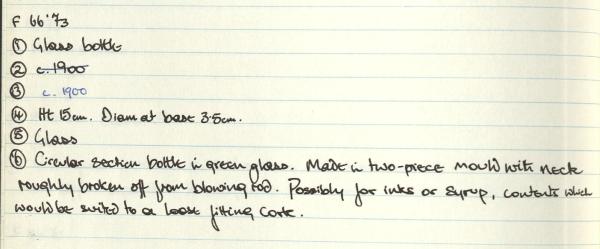 F 66'73
① Glass bottle
② c.1900
③ c. 1900
④ Ht 15cm. Diam at base 3.5cm.
⑤ Glass
⑥ Circular section bottle in green glass. Made in two-piece mould with neck
roughly broken off from blowing rod. Possibly for inks or syrup, contents which
would be suited to a loose fitting cork.